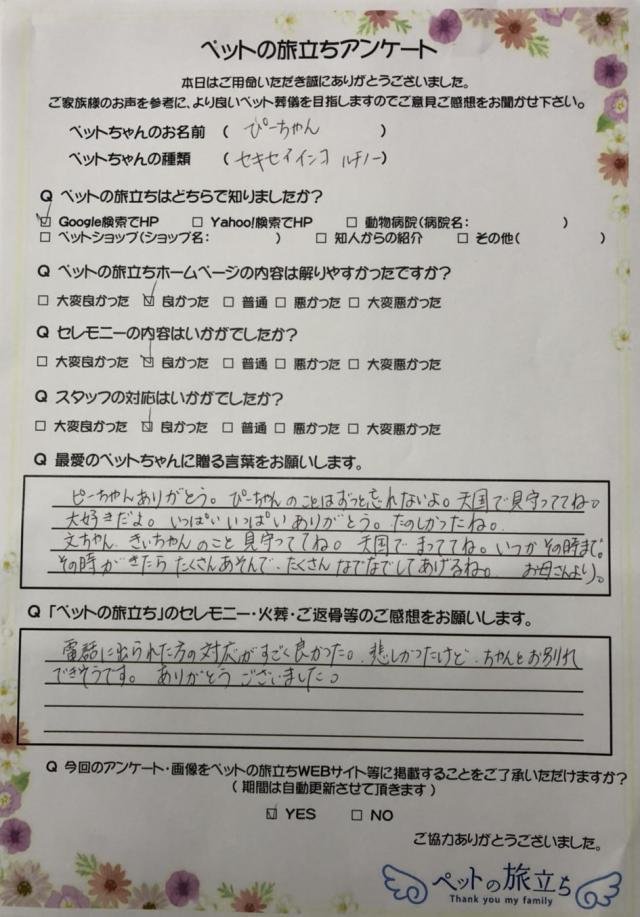 ペットの旅立ちアンケート
本日はご用命いただき誠にありがとうございました。
ご家族様のお声を参考に、より良いペット葬儀を目指しますのでご意見ご感想をお聞かせ下さい。
ペットちゃんのお名前 ( ぴーちゃん )
ペットちゃんの種類 ( セキセイインコ ルチノー )
Q ペットの旅立ちはどちらで知りましたか?
☑ Google検索でHP □ Yahoo!検索でHP □ 動物病院(病院名: )
□ ペットショップ(ショップ名: ) □ 知人からの紹介 □ その他( )
Q ペットの旅立ちホームページの内容は解りやすかったですか?
□ 大変良かった ☑ 良かった □ 普通 □ 悪かった □ 大変悪かった
Q セレモニーの内容はいかがでしたか?
□ 大変良かった ☑ 良かった □ 普通 □ 悪かった □ 大変悪かった
Q スタッフの対応はいかがでしたか?
□ 大変良かった ☑ 良かった □ 普通 □ 悪かった □ 大変悪かった
Q 最愛のペットちゃんに贈る言葉をお願いします。
ピーちゃんありがとう。ぴーちゃんのことはずっと忘れないよ。天国で見守っててね。
大好きだよ。いっぱいいっぱいありがとう。たのしかったね。
文ちゃん、きぃちゃんのこと見守っててね。天国でまっててね。いつかその時まで。
その時がきたらたくさんあそんで、たくさんなでなでしてあげるね。 お母さんより。
Q 「ペットの旅立ち」のセレモニー・火葬・ご返骨等のご感想をお願いします。
電話に出られた方の対応がすごく良かった。悲しかったけど、ちゃんとお別れ
できそうです。ありがとうございました。
Q 今回のアンケート・画像をペットの旅立ちWEBサイト等に掲載することをご了承いただけますか?
( 期間は自動更新させて頂きます )
☑ YES □ NO
ご協力ありがとうございました。
ペットの旅立ち
Thank you my family